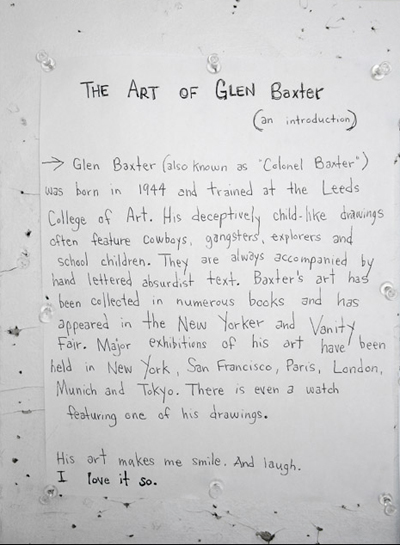 THE ART OF GLEN Baxter
(an introduction)
→ Glen Baxter (also known as "Colonel Baxter")
was born in 1944 and trained at the Leeds
College of Art. His deceptively child-like drawings
often feature cowboys, gangsters, explorers and
school children. They are always accompanied by
hand lettered absurdist text. Baxter's art has
been collected in numerous books and has
appeared in the New Yorker and Vanity
Fair. Major exhibitions of his art have been
held in New York, San Francisco, Paris, London,
Munich and Tokyo. There is even a watch
featuring one of his drawings.
His art makes me smile. And laugh.
I love it so.